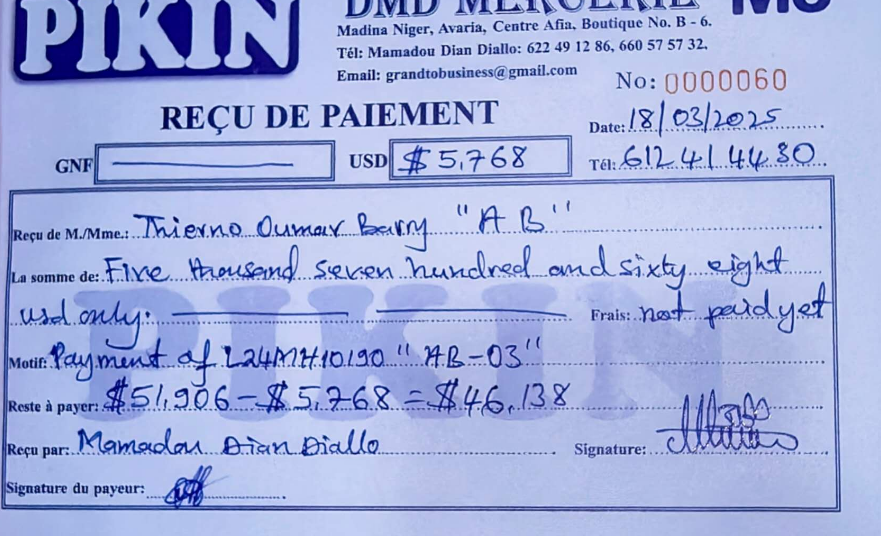 PIKIN
DMD MERCERIE
Madina Niger, Avaria, Centre Afia, Boutique No. B - 6.
Tél: Mamadou Dian Diallo: 622 49 12 86, 660 57 57 32.
Email: grandtobusiness@gmail.com
No: 0000060
REÇU DE PAIEMENT
Date: 18/03/2025
GNF USD $5,768
Tél: 612 41 44 30
Reçu de M./Mme.: Thierno Oumar Barry "AB"
La somme de: Five thousand seven hundred and sixty eight
usd only. Frais: not paid yet
Motif: Payment of L24MH10190 "AB-03"
Reste à payer: $51,906 - $5,768 = $46,138
Reçu par: Mamadou Dian Diallo Signature:
Signature du payeur:
PIKIN